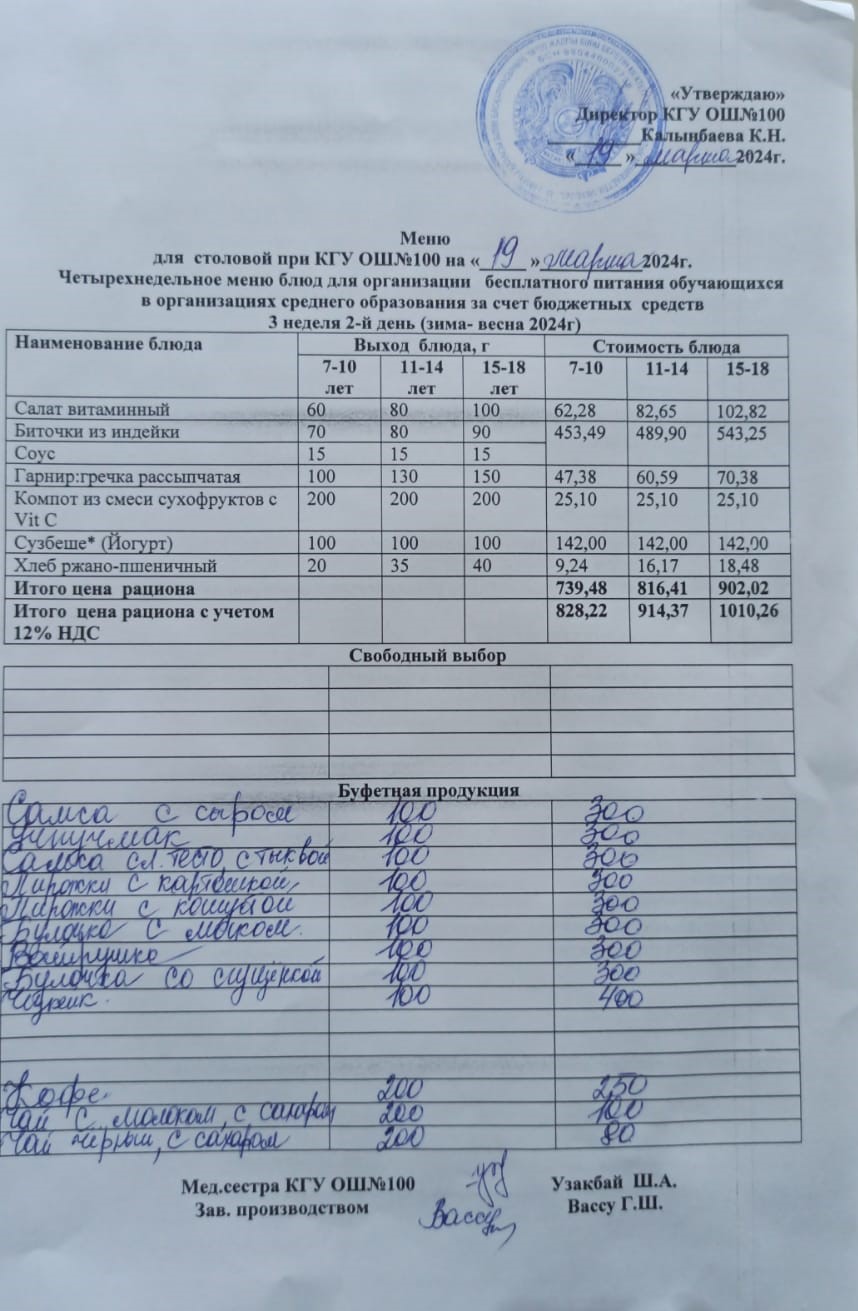 «Утверждаю»
Директор КГУ ОШ№100
Калынбаева К.Н.
«19» марта 2024г.
Меню
для столовой при КГУ ОШ№100 на «19» марта 2024г.
Четырехнедельное меню блюд для организации бесплатного питания обучающихся
в организациях среднего образования за счет бюджетных средств
3 неделя 2-й день (зима- весна 2024г)
Наименование блюда Выход блюда, г Стоимость блюда
7-10 лет 11-14 лет 15-18 лет 7-10 11-14 15-18
Салат витаминный 60 80 100 62,28 82,65 102,82
Биточки из индейки 70 80 90 453,49 489,90 543,25
Соус 15 15 15
Гарнир:гречка рассыпчатая 100 130 150 47,38 60,59 70,38
Компот из смеси сухофруктов с 200 200 200 25,10 25,10 25,10
Vit C
Сузбеше* (Йогурт) 100 100 100 142,00 142,00 142,00
Хлеб ржано-пшеничный 20 35 40 9,24 16,17 18,48
Итого цена рациона 739,48 816,41 902,02
Итого цена рациона с учетом 828,22 914,37 1010,26
12% НДС
Свободный выбор
Буфетная продукция
Самса с сыром 100 300
Учпучмак 100 300
Самса сл. тесто, с тыквой 100 300
Пирожки с картошкой, 100 300
Пирожки с капустой 100 300
Булочка с маком. 100 300
Ватрушка 100 300
Булочка со сгущёнкой 100 300
100 400
Кофе. 200 250
Чай с молоком, с сахаром 200 100
Чай чёрный, с сахаром 200 80
Мед.сестра КГУ ОШ№100 Узакбай Ш.А.
Зав. производством Вассу Вассу Г.Ш.